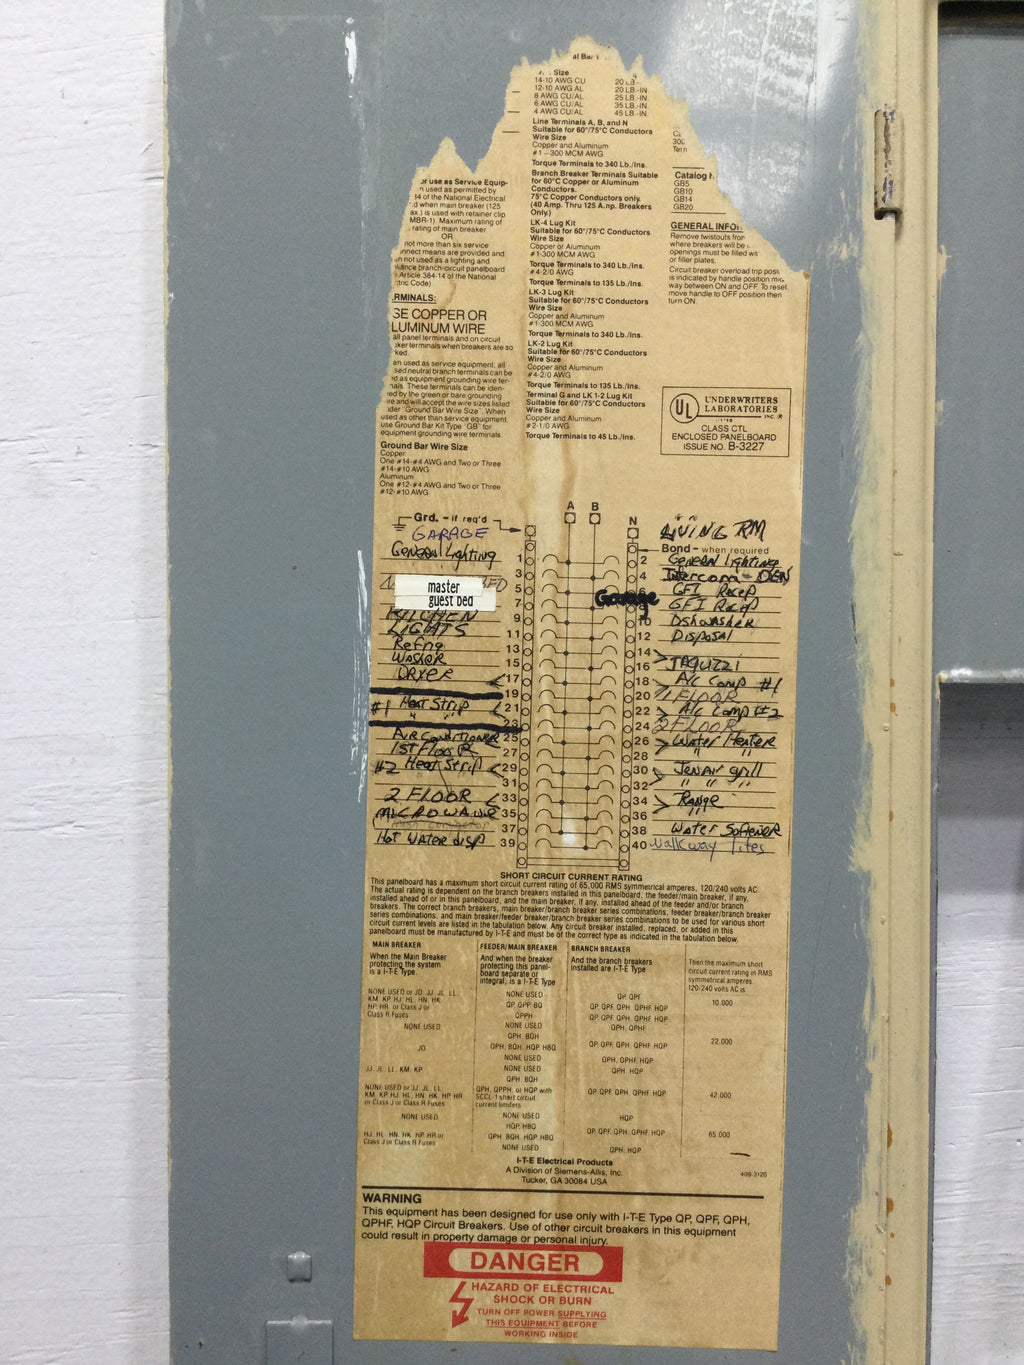 al Bar
Size
14-10 AWG CU 20 LB.-IN.
12-10 AWG AL 20 LB.-IN.
8 AWG CU/AL 25 LB.-IN.
6 AWG CU/AL 35 LB.-IN.
4 AWG CU/AL 45 LB.-IN.
Line Terminals A, B, and N
Suitable for 60°/75°C Conductors
Wire Size
Copper and Aluminum
#1-300 MCM AWG
Torque Terminals to 340 Lb./Ins.
Branch Breaker Terminals Suitable
for 60°C Copper or Aluminum
Conductors.
75°C Copper Conductors only.
(40 Amp. Thru 125 A.np. Breakers
Only.)
LK-4 Lug Kit
Suitable for 60°/75°C Conductors
Wire Size
Copper or Aluminum
#1-300 MCM AWG
Torque Terminals to 340 Lb./Ins.
#4-2/0 AWG
Torque Terminals to 135 Lb./Ins.
LK-3 Lug Kit
Suitable for 60°/75°C Conductors
Wire Size
Copper and Aluminum
#1-300 MCM AWG
Torque Terminals to 340 Lb./Ins.
LK-2 Lug Kit
Suitable for 60°/75°C Conductors
Wire Size
Copper and Aluminum
#4-2/0 AWG
Torque Terminals to 135 Lb./Ins.
Terminal G and LK 1-2 Lug Kit
Suitable for 60°/75°C Conductors
Wire Size
Copper and Aluminum
#2-1/0 AWG
Torque Terminals to 45 Lb./Ins.
or use as Service Equip-
n used as permitted by
of the National Electrical
d when main breaker (125
ax.) is used with retainer clip
MBR-1). Maximum rating of
rating of main breaker
OR
not more than six service
nnect means are provided and
n not used as a lighting and
liance branch-circuit panelboard
Article 384-14 of the National
tric Code)
RMINALS:
GE COPPER OR
LUMINUM WIRE
all panel terminals and on circuit
ker terminals when breakers are so
ked.
en used as service equipment, all
sed neutral branch terminals can be
d as equipment grounding wire ter-
nals. These terminals can be iden-
ied by the green or bare grounding
re and will accept the wire sizes listed
nder Ground Bar Wire Size. When
used as other than service equipment,
use Ground Bar Kit Type "GB" for
equipment grounding wire terminals
Ground Bar Wire Size
Copper
One #14-#4 AWG and Two or Three
#14-#10 AWG
Aluminum
One #12-#4 AWG and Two or Three
#12-#10 AWG
Tern
Catalog
GB5
GB10
GB14
GB20
GENERAL INFO
Remove twistouts from
where breakers will be
openings must be filled wi
or filler plates.
Circuit breaker overload trip posit
is indicated by handle position mid
way between ON and OFF. To reset,
move handle to OFF position then
turn ON.
UL UNDERWRITERS
LABORATORIES INC.®
CLASS CTL
ENCLOSED PANELBOARD
ISSUE NO. B-3227
Grd. - if req'd A B N LIVING RM
GARAGE Bond - when required
General Lighting 1 2 General Lighting
3 4 Intercom - DEN
master BED 5 GFI Recep
guest bed 7 Garage GFI Recep
KITCHEN 9 10 Dishwasher
LIGHTS 11 12 Disposal
Refrig 13 14
Washer 15 16 JAQUIZZI
DRYER 17 18 A/C Comp #1
19 20 1 FLOOR
#1 Heat Strip 21 22 A/C Comp #2
" " 23 24 2 FLOOR
AIR CONDITIONER 25 26 Water Heater
1ST FLOOR 27 28 "
#2 Heat Strip 29 30 JenAir grill
31 32 " " "
2 FLOOR 33 34 Range
MICROWAVE 35 36 "
Trash Compactor 37 38 Water Softener
Hot Water disp 39 40 Walkway lites
SHORT CIRCUIT CURRENT RATING
This panelboard has a maximum short circuit current rating of 65,000 RMS symmetrical amperes, 120/240 volts AC.
The actual rating is dependent on the branch breakers installed in this panelboard, the feeder/main breaker, if any,
installed ahead of or in this panelboard, and the main breaker, if any, installed ahead of the feeder and/or branch
breakers. The correct branch breakers, main breaker/branch breaker series combinations, feeder breaker/branch breaker
series combinations, and main breaker/feeder breaker/branch breaker series combinations to be used for various short
circuit current levels are listed in the tabulation below. Any circuit breaker installed, replaced, or added in this
panelboard must be manufactured by I-T-E and must be of the correct type as indicated in the tabulation below.
MAIN BREAKER FEEDER/MAIN BREAKER BRANCH BREAKER
When the Main Breaker
protecting the system
is a I-T-E Type.
And when the breaker
protecting this panel-
board separate or
integral, is a I-T-E Type
And the branch breakers
installed are I-T-E Type
Then the maximum short
circuit current rating in RMS
symmetrical amperes
120/240 volts AC is
NONE USED or JD, JJ, JL, LL,
KM, KP, HJ, HL, HN, HK,
HP, HR, or Class J or
Class R Fuses
NONE USED QP, QPF 10,000
QP QPP BQ QP, QPF, QPH, QPHF, HQP
QPPH QP, QPF, QPH, QPHF, HQP
NONE USED NONE USED QPH, QPHF
QPH, BQH
JD QPH, BQH, HQP, HBQ QP, QPF, QPH, QPHF, HQP 22,000
NONE USED QPH, QPHF, HQP
JJ, JL, LL, KM, KP NONE USED QPH, HQP
QPH, BQH
NONE USED or JJ, JL, LL,
KM, KP, HJ, HL, HN, HK, HP, HR
or Class J or Class R Fuses
QPH, QPPH, or HQP with
SCCL-1 short circuit
current limiters
QP, QPF, QPH, QPHF, HQP 42,000
NONE USED NONE USED HQP
HQP, HBQ
HJ, HL, HN, HK, HP, HR or
Class J or Class R Fuses
QPH, BQH, HQP, HBQ QP, QPF, QPH, QPHF, HQP 65,000
NONE USED QPH, HQP
I-T-E Electrical Products
A Division of Siemens-Allis, Inc.
Tucker, GA 30084 USA
409-3120
WARNING
This equipment has been designed for use only with I-T-E Type QP, QPF, QPH,
QPHF, HQP Circuit Breakers. Use of other circuit breakers in this equipment
could result in property damage or personal injury.
DANGER
HAZARD OF ELECTRICAL
SHOCK OR BURN
TURN OFF POWER SUPPLYING
THIS EQUIPMENT BEFORE
WORKING INSIDE